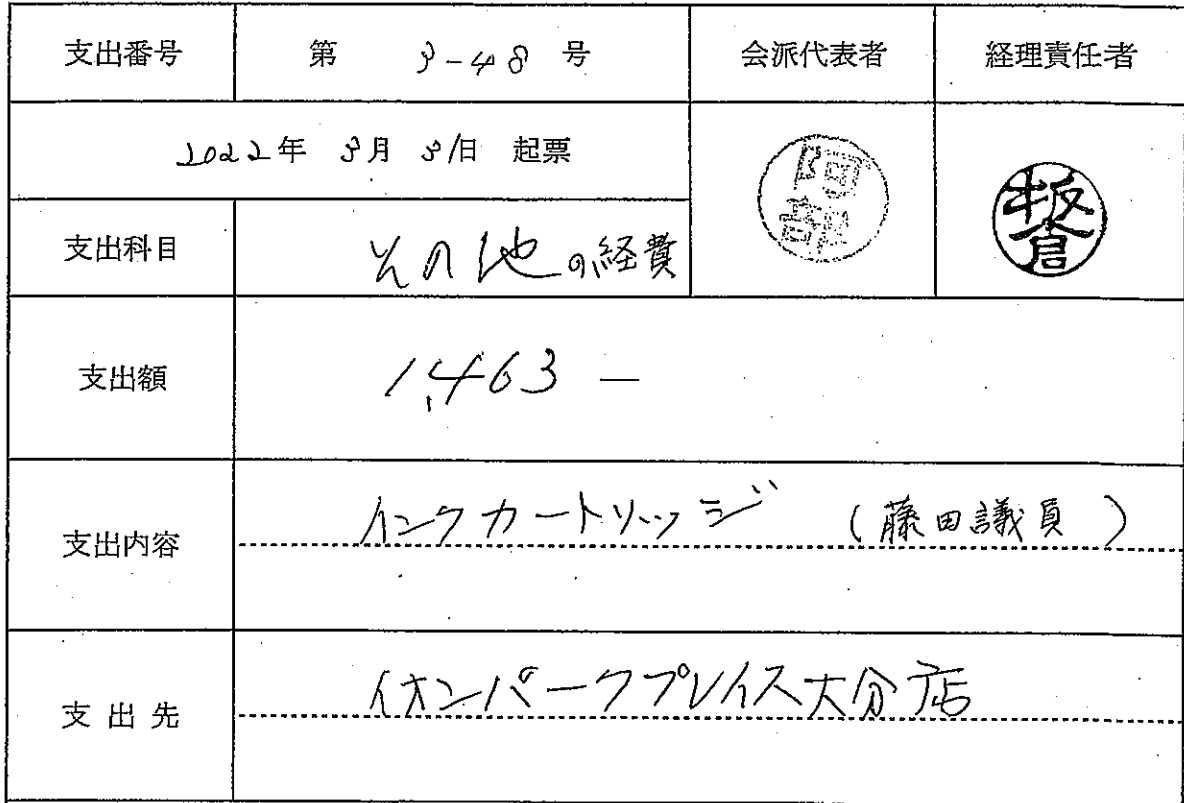 支出番号 第 3-48 号 会派代表者 経理責任者
2022年 3月 31日 起票
阿部
板倉
支出科目 その他の経費
支出額 1,463 —
支出内容 インクカートリッジ (藤田議員)
支出先 イオンパークプレイス大分店